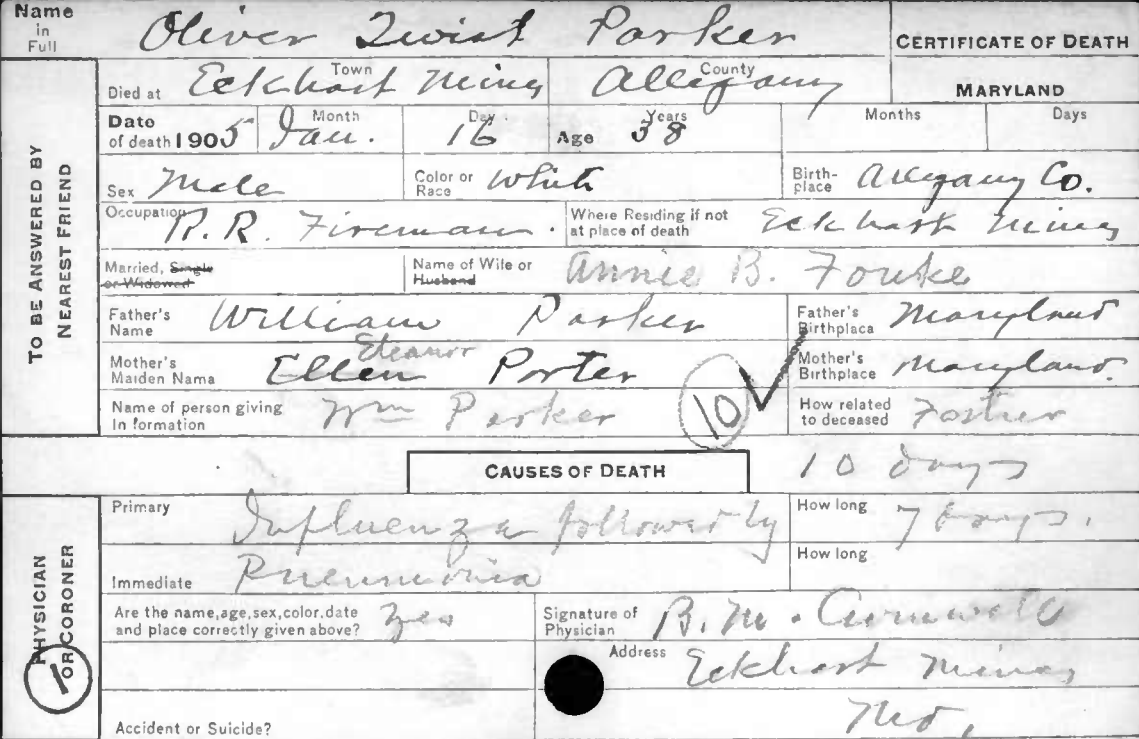 Name in Full Oliver Twist Parker CERTIFICATE OF DEATH
Died at Town Eckhart Mines County Allegany MARYLAND
Date of death 1905 Month Jan. Day 16 Age Years 38 Months Days
Sex Male Color or Race White Birth-place Allegany Co.
Occupation R. R. Fireman. Where Residing if not at place of death Eckhart Mines
Married, Single or Widowed Name of Wife or Husband Annie B. Fouke
Father's Name William Parker Father's Birthplace Maryland
Eleanor
Mother's Maiden Name Ellen Porter Mother's Birthplace Maryland.
Name of person giving Information Wm Parker 10 How related to deceased
TO BE ANSWERED BY NEAREST FRIEND
CAUSES OF DEATH 10 days
Primary Influenza followed by How long 7 days.
Immediate Pneumonia How long
Are the name, age, sex, color, date and place correctly given above? Yes Signature of Physician B. M.
Address Eckhart Mines
Md,
Accident or Suicide?
PHYSICIAN OR CORONER
1